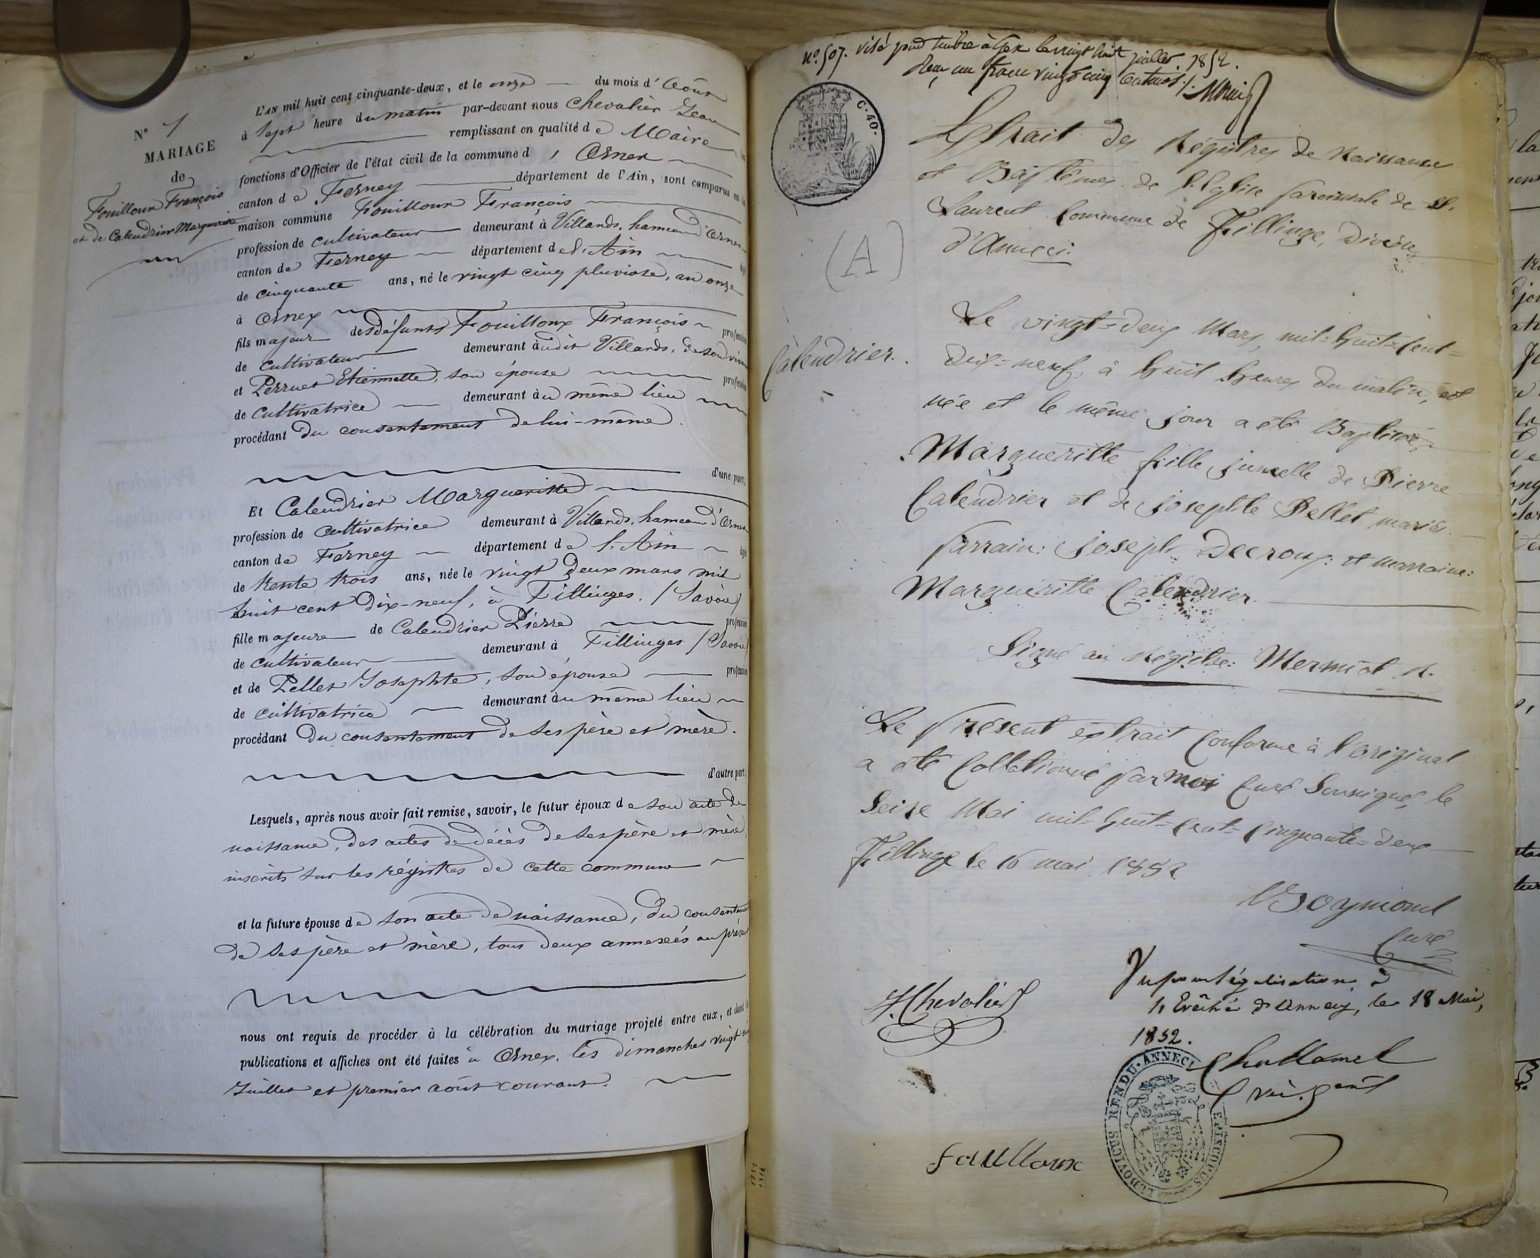 N° 7
MARIAGE
de
Fouilloux François
et de Calendrier Marguerite
L'AN mil huit cent cinquante-deux, et le onze du mois d'Août
à Sept heure du matin par-devant nous Chevalier Jean
remplissant en qualité de Maire
fonctions d'Officier de l'état civil de la commune d'Ornex
canton de Ferney département de l'Ain, sont comparus en la
maison commune Fouilloux François
profession de cultivateur demeurant à Villards, hameau d'Ornex
canton de Ferney département de l'Ain
de cinquante ans, né le vingt cinq pluviose, an onze
à Ornex
fils majeur des défunts Fouilloux François profession
de cultivateur demeurant audit Villards, de son vivant
et Perruet Etiennette, son épouse profession
de Cultivatrice demeurant au même lieu
procédant du consentement de lui-même.
d'une part,
Et Calendrier Margueritte
profession de cultivatrice demeurant à Villards, hameau d'Ornex
canton de Ferney département de l'Ain
de trente trois ans, née le vingt deux mars mil
huit cent dix-neuf, à Fillinges. (Savoie)
fille majeure de Calendrier Pierre profession
de cultivateur demeurant à Fillinges (Savoie)
et de Pellet Josephte, son épouse profession
de cultivatrice demeurant au même lieu
procédant du consentement de ses père et mère.
d'autre part,
Lesquels, après nous avoir fait remise, savoir, le futur époux de son acte de
naissance, des actes de décès de ses père et mère
inscrits sur les régistres de cette commune
et la future épouse de son acte de naissance, du consentement
de ses père et mère, tous deux annexés au présent
nous ont requis de procéder à la célébration du mariage projeté entre eux, et dont les
publications et affiches ont été faites à Ornex, les dimanches vingt
Juillet et premier août courant.
N° 507. visé pour timbre à Gex le vingt huit juillet 1852.
Reçu un franc vingt cinq centimes
C. 40.
Extrait des Régistres de Naissance
et Baptêmes de l'Eglise paroissiale de St.
Laurent Commune de Fillinge, Diocèse
d'Anneci.
(A)
Calendrier.
Le vingt-deux Mars mil-huit-cent-
dix-neuf, à huit heures du matin, est
née et le même jour a été Baptisée
Margueritte fille jumelle de Pierre
Calendrier et de Josephte Pellet mariés.
parrain: Joseph Decroux et marraine:
Margueritte Calendrier.
Signé au Régistre: Mermiot
Le présent extrait conforme à l'original
a été collationné par moi Curé soussigné, le
seize Mai mil-huit-cent-cinquante-deux
Fillinge le 16 mai 1852
Curé
Vu pour légalisation à
l'Evêché d'Annecy, le 18 Mai,
1852.
J. Chevalier
LUDOVICUS RENDU ANNECI EPISCOPUS
Fouilloux